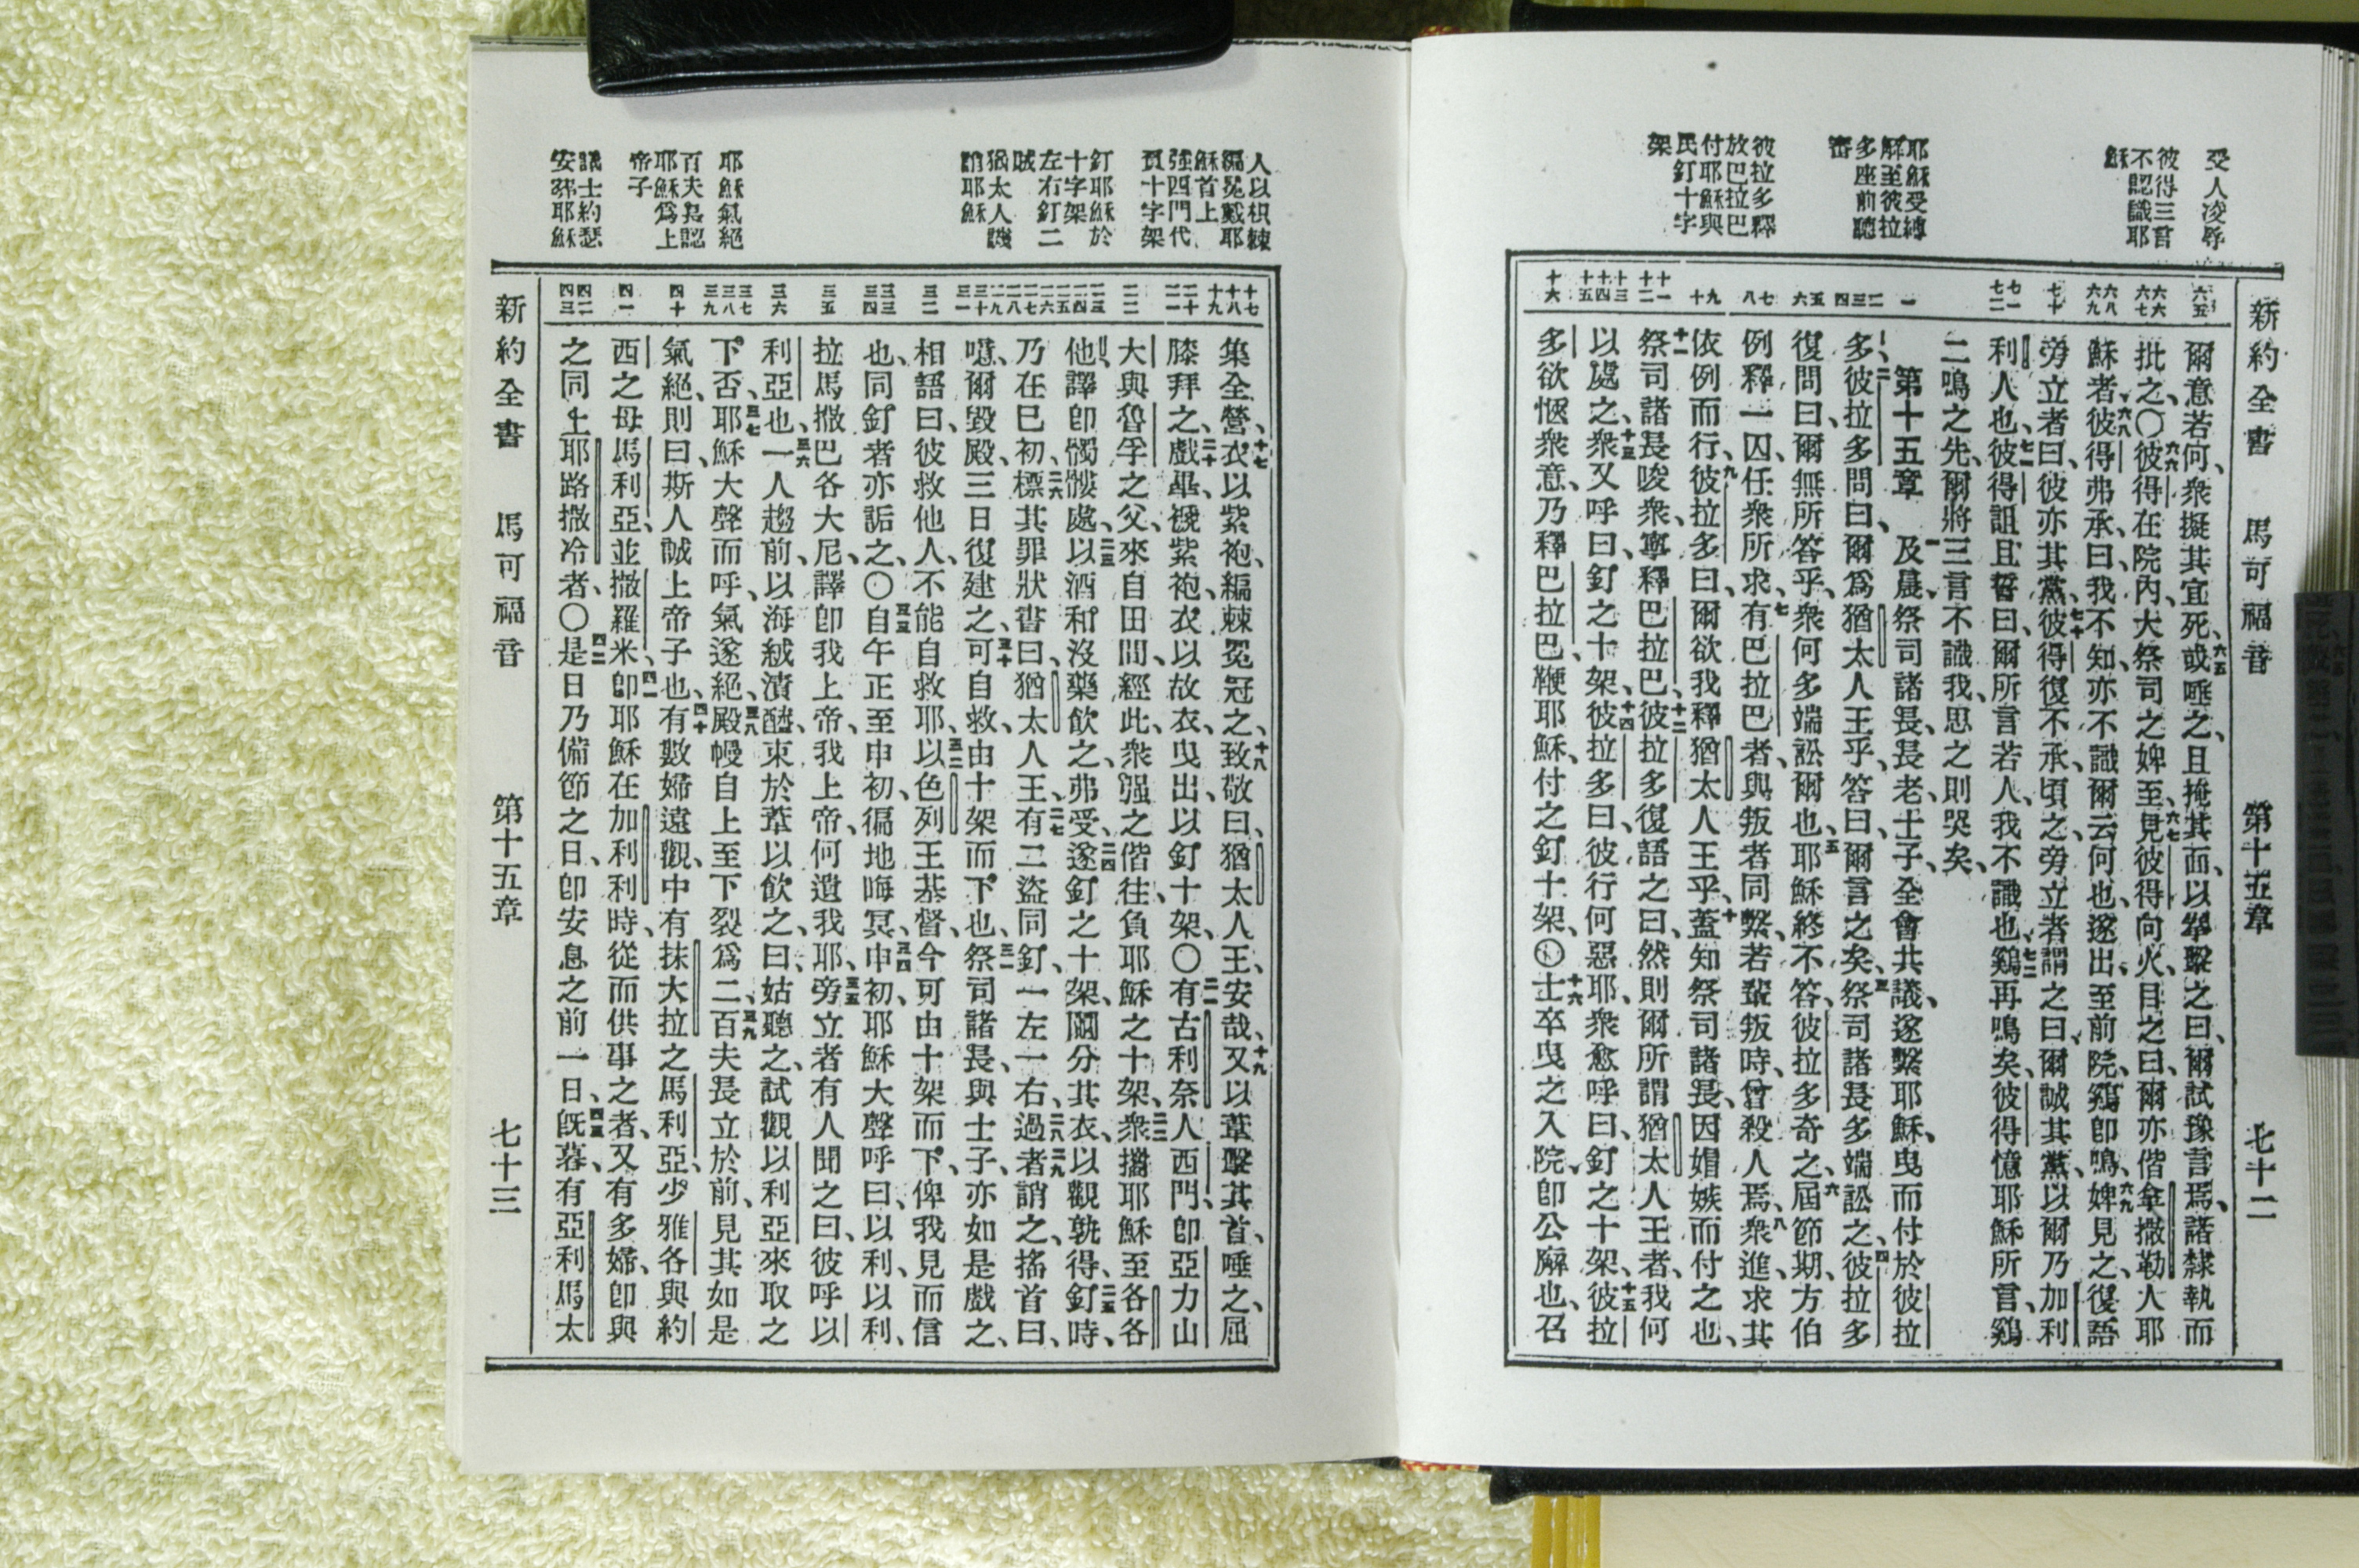 新約全書 馬可福音 第十五章 七十二
受人凌辱
彼得三言
不認識耶
穌
耶穌受縛
解至彼拉
多座前聽
審
彼拉多釋
放巴拉巴
付耶穌與
民釘十字
架
六五
六六
六七
六八
六九
七十
七一
七二
一
二
三
四
五
六
七
八
九
十
十一
十二
十三
十四
十五
十六
爾意若何、衆擬其宜死、六五或唾之、且掩其面、以拳擊之曰、爾試豫言焉、諸隸執而
批之、〇六六彼得在院內、大祭司之婢至、六七見彼得向火、目之曰、爾亦偕拿撒勒人耶
穌者、六八彼得弗承、曰、我不知、亦不識爾云何也、遂出、至前院、鷄卽鳴、六九婢見之、復語
旁立者曰、彼亦其黨、七十彼得復不承、頃之、旁立者謂之曰、爾誠其黨、以爾乃加利
利人也、七一彼得詛且誓曰、爾所言若人、我不識也、七二鷄再鳴矣、彼得憶耶穌所言、鷄
二鳴之先、爾將三言不識我、思之則哭矣、
第十五章 一及晨、祭司諸長、長老、士子、全會共議、遂繫耶穌、曳而付於彼拉
多、二彼拉多問曰、爾爲猶太人王乎、答曰、爾言之矣、三祭司諸長多端訟之、四彼拉多
復問曰、爾無所答乎、衆何多端訟爾也、五耶穌終不答、彼拉多奇之、六屆節期、方伯
例釋一囚、任衆所求、七有巴拉巴者、與叛者同繫、若輩叛時、曾殺人焉、八衆進、求其
依例而行、九彼拉多曰、爾欲我釋猶太人王乎、十蓋知祭司諸長、因媢嫉而付之也、
十一祭司諸長唆衆、寧釋巴拉巴、十二彼拉多復語之曰、然則爾所謂猶太人王者、我何
以處之、十三衆又呼曰、釘之十架、十四彼拉多曰、彼行何惡耶、衆愈呼曰、釘之十架、十五彼拉
多欲愜衆意、乃釋巴拉巴、鞭耶穌、付之釘十架、〇十六士卒曳之入院、卽公廨也、召
新約全書 馬可福音 第十五章 七十三
人以枳棘
編冕戴耶
穌首上
強西門代
負十字架
釘耶穌於
十字架
左右釘二
賊
猶太人譏
誚耶穌
耶穌氣絕
百夫長認
耶穌爲上
帝子
議士約瑟
安葬耶穌
十七
十八
十九
二十
二一
二二
二三
二四
二五
二六
二七
二八
二九
三十
三一
三二
三三
三四
三五
三六
三七
三八
三九
四十
四一
四二
四三
集全營、十七衣以紫袍、編棘冕冠之、十八致敬曰、猶太人王、安哉、十九又以葦擊其首、唾之、屈
膝拜之、二十戲畢、褫紫袍、衣以故衣、曳出、以釘十架、〇二一有古利奈人西門、卽亞力山
大與魯孚之父、來自田間、經此、衆强之偕往、負耶穌之十架、二二衆攜耶穌至各各
他、譯卽髑髏處、二三以酒和沒藥飮之、弗受、二四遂釘之十架、鬮分其衣、以觀孰得、二五釘時、
乃在巳初、二六標其罪狀書曰、猶太人王、二七有二盜同釘、一左一右、二八二九過者誚之、搖首曰、
噫、爾毀殿、三日復建之、三十可自救、由十架而下也、三一祭司諸長與士子、亦如是戲之、
相語曰、彼救他人、不能自救耶、三二以色列王基督、今可由十架而下、俾我見而信
也、同釘者亦詬之、〇三三自午正至申初、徧地晦冥、三四申初、耶穌大聲呼曰、以利、以利、
拉馬撒巴各大尼、譯卽我上帝、我上帝、何遺我耶、三五旁立者有人聞之曰、彼呼以
利亞也、三六一人趨前、以海絨漬醯、束於葦以飮之、曰、姑聽之、試觀以利亞來取之
下否、三七耶穌大聲而呼、氣遂絕、三八殿幔自上至下裂爲二、三九百夫長立於前、見其如是
氣絕、則曰、斯人誠上帝子也、四十有數婦遠觀、中有抹大拉之馬利亞、少雅各與約
西之母馬利亞、並撒羅米、四一卽耶穌在加利利時、從而供事之者、又有多婦、卽與
之同上耶路撒冷者、〇四二是日乃備節之日、卽安息之前一日、四三旣暮、有亞利馬太